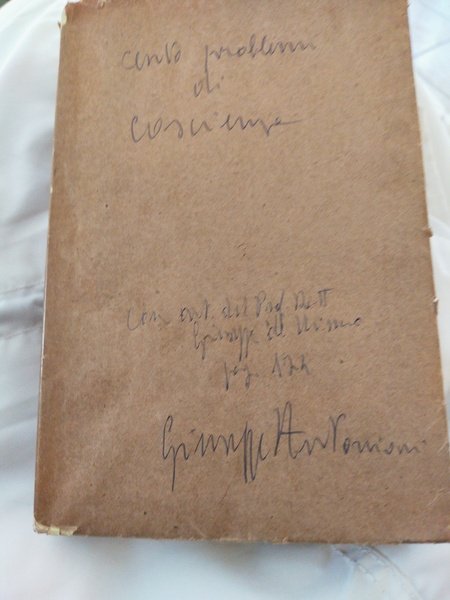 cento problemi
di
coscienza
Con art. del Prof. Dott
Giuseppe
pag. 174
Giuseppe Antonioni